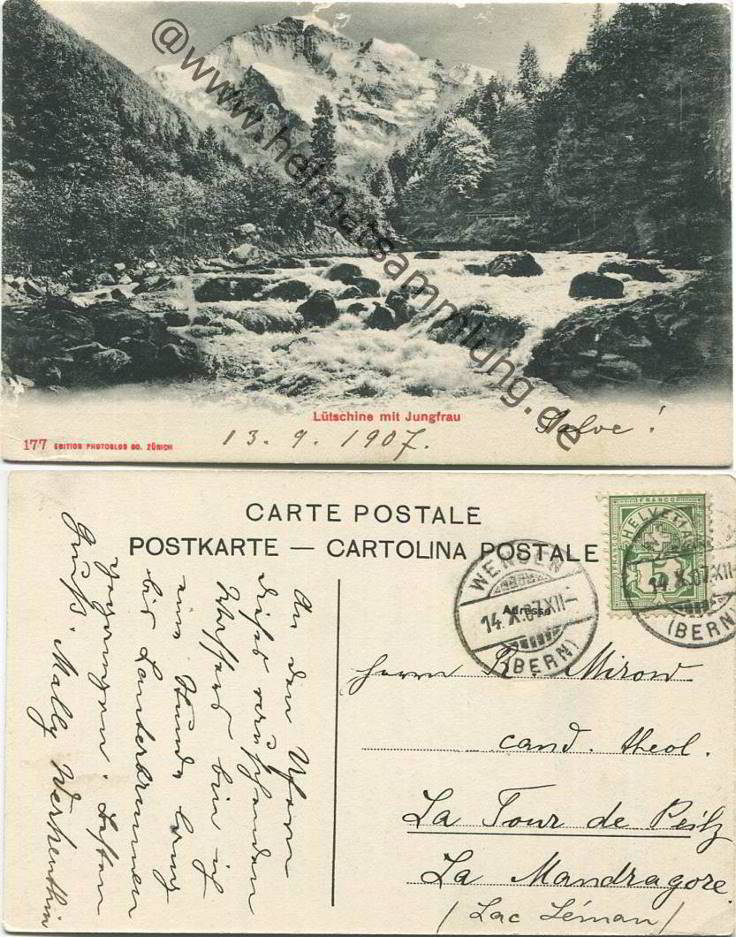 @www.heimatsammlung.de
Lütschine mit Jungfrau
177 EDITION PHOTOGLOB CO. ZÜRICH
13. 9. 1907.
Salve!
CARTE POSTALE
POSTKARTE — CARTOLINA POSTALE
HELVETIA
FRANCO
5
WENGEN
14.X.07.XII-
(BERN)
14.X.07.XII-
(BERN)
Adresse
Herrn R. Mirow
cand. theol.
La Tour de Peilz
La Mandragore.
(Lac Léman)
An den Ufern
dieses rauschenden
Wassers bin ich
eine Stunde lang
bis Lauterbrunnen
gegangen. Besten
Gruß. Mally Werkenthin